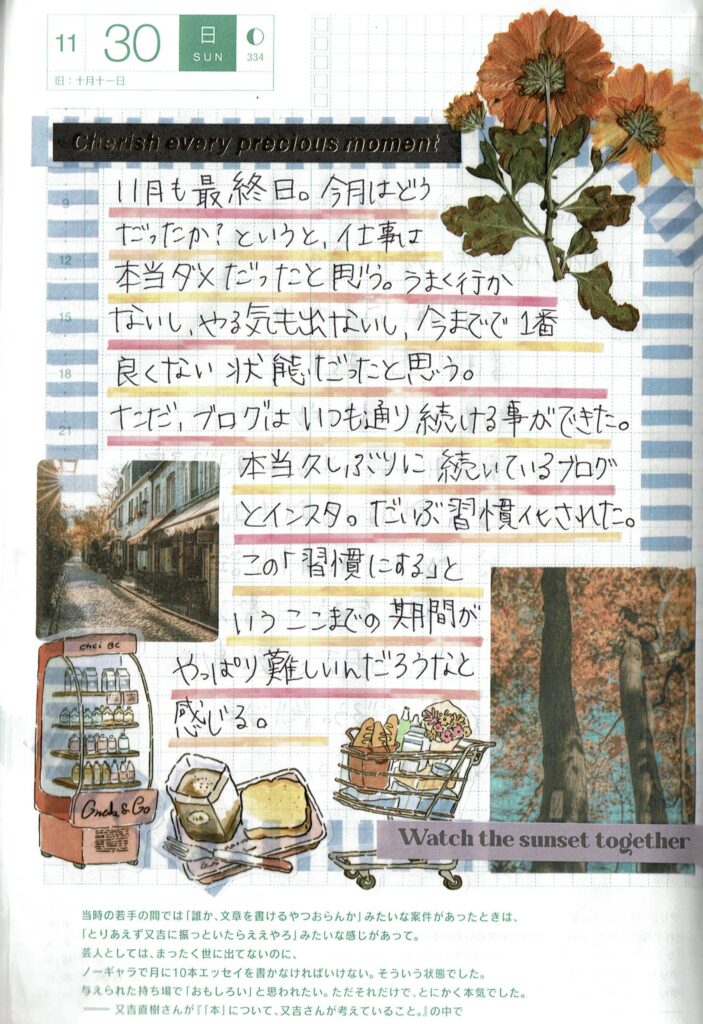 11 30 日 SUN 334
旧：十月十一日
Cherish every precious moment
9
12
15
18
21
11月も最終日。今月はどう
だったか？というと、仕事は
本当ダメだったと思う。うまく行か
ないし、やる気も出ないし、今までで1番
良くない状態だったと思う。
ただ、ブログはいつも通り続ける事ができた。
本当久しぶりに続いているブログ
とインスタ。だいぶ習慣化された。
この「習慣にする」と
いうここまでの期間が
やっぱり難しいんだろうなと
感じる。
Chei BC
& Go
Watch the sunset together
当時の若手の間では「誰か、文章を書けるやつおらんか」みたいな案件があったときは、
「とりあえず又吉に振っといたらええやろ」みたいな感じがあって。
芸人としては、まったく世に出てないのに、
ノーギャラで月に10本エッセイを書かなければいけない。そういう状態でした。
与えられた持ち場で「おもしろい」と思われたい。ただそれだけで、とにかく本気でした。
―― 又吉直樹さんが『「本」について、又吉さんが考えていること。』の中で